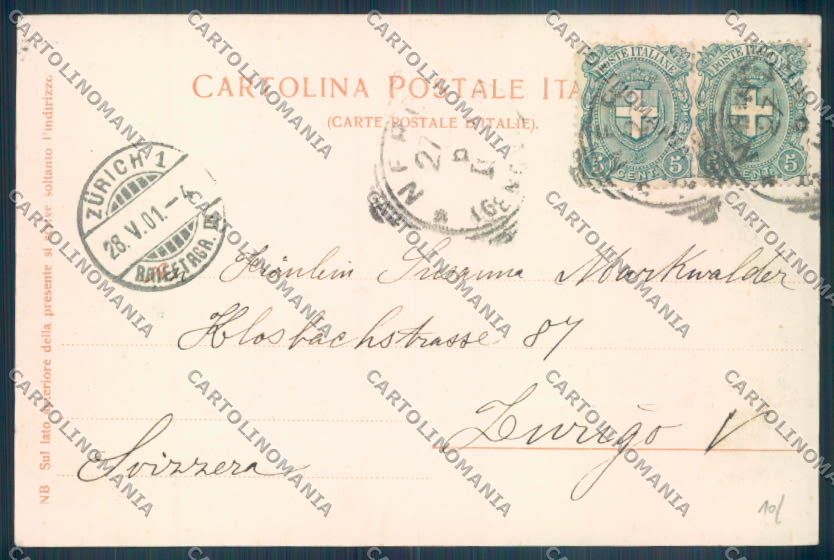 CARTOLINA POSTALE ITA
(CARTE POSTALE D'ITALIE).
POSTE ITALIANE
5 CENT. 5
POSTE ITALIANE
5 CENT. 5
NERVI
27
(GENOVA)
ZÜRICH 1
28.V.01.-4
BRIEFTRGR.
Fräulein Susanna Markwalder
Klosbachstrasse 87
Zurigo V
Svizzera
NB Sul lato anteriore della presente si scrive soltanto l'indirizzo.
10/
CARTOLINOMANIA